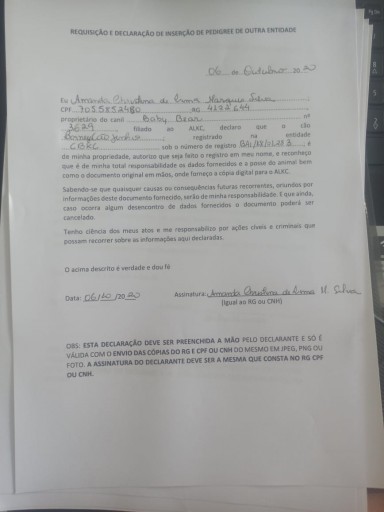 REQUISIÇÃO E DECLARAÇÃO DE INSERÇÃO DE PEDIGREE DE OUTRA ENTIDADE
06 de Outubro 20 20
Eu Amanda Marques Silva
CPF RG
proprietário do canil Baby Bear nº
3629 filiado ao ALKC, declaro que o cão
registrado na entidade
CBKC sob o número de registro é
de minha propriedade, autorizo que seja feito o registro em meu nome, e reconheço
que é de minha total responsabilidade os dados fornecidos e a posse do animal bem
como o documento original em mãos, onde forneço a cópia digital para o ALKC.
Sabendo-se que quaisquer causas ou consequências futuras recorrentes, oriundos por
informações deste documento fornecido, serão de minha responsabilidade. E que ainda,
caso ocorra algum desencontro de dados fornecidos o documento poderá ser
cancelado.
Tenho ciência dos meus atos e me responsabilizo por ações cíveis e criminais que
possam recorrer sobre as informações aqui declaradas.
O acima descrito é verdade e dou fé
Data: 06/10/2020 Assinatura: Amanda M. Silva
(Igual ao RG ou CNH)
OBS: ESTA DECLARAÇÃO DEVE SER PREENCHIDA A MÃO PELO DECLARANTE E SÓ É
VÁLIDA COM O ENVIO DAS CÓPIAS DO RG E CPF OU CNH DO MESMO EM JPEG, PNG OU
FOTO. A ASSINATURA DO DECLARANTE DEVE SER A MESMA QUE CONSTA NO RG CPF
OU CNH.